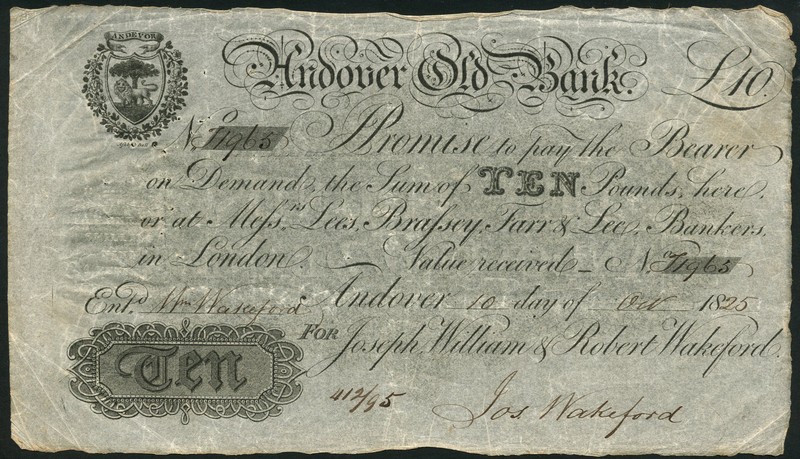 ANDEVOR
Andover Old Bank.
£10.
No T1965 I Promise to pay the Bearer
on Demand, the Sum of TEN Pounds, here,
or at Messrs. Lees, Brassey, Farr & Lee, Bankers,
in London. — Value received — No T1965
Entd. Wm Wakeford Andover 10 day of Oct 1825
FOR Joseph, William & Robert Wakeford.
Ten
412/95
Jos. Wakeford